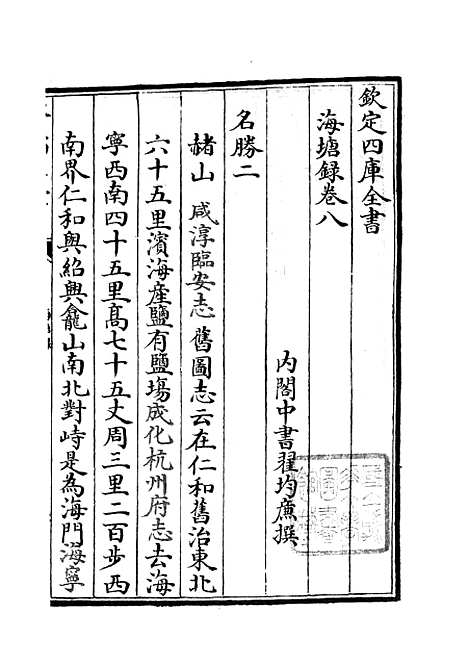 欽定四庫全書
海塘録卷八
內閣中書翟均廉撰
名勝二
赭山 咸淳臨安志舊圖志云在仁和舊治東北
六十五里濱海產鹽有鹽塲成化杭州府志去海
寧西南四十五里高七十五丈周三里二百步西
南界仁和與紹興龕山南北對峙是為海門海寧